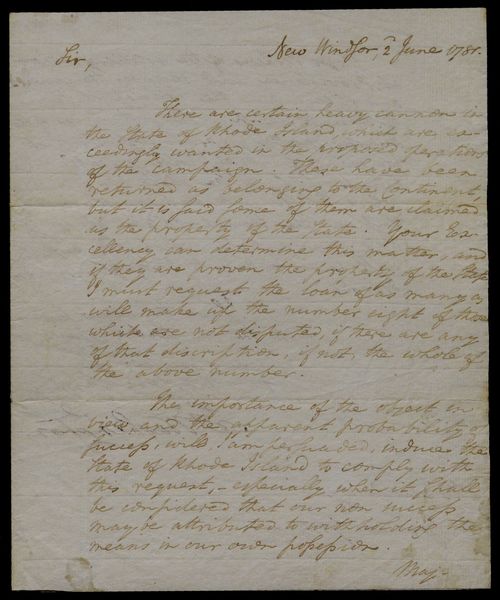 New Windsor, 2 June 1781.
Sir,
There are certain heavy cannon in
the State of Rhode Island, which are ex-
ceedingly wanted in the proposed operations
of the campaign. These have been
returned as belonging to the Continent,
but it is said some of them are claimed
as the property of the State. Your Ex-
cellency can determine this matter, and
if they are proven the property of the State
I must request the loan of as many as
will make up the number eight of those
which are not disputed, if there are any
of that discription, if not, the whole of
the above number.
The importance of the object in
view, and the apparent probability of
success, will, I am persuaded, induce the
State of Rhode Island to comply with
this request, - especially when it shall
be considered that our non success
may be attributed to withholding the
means in our own possession.
Maj-